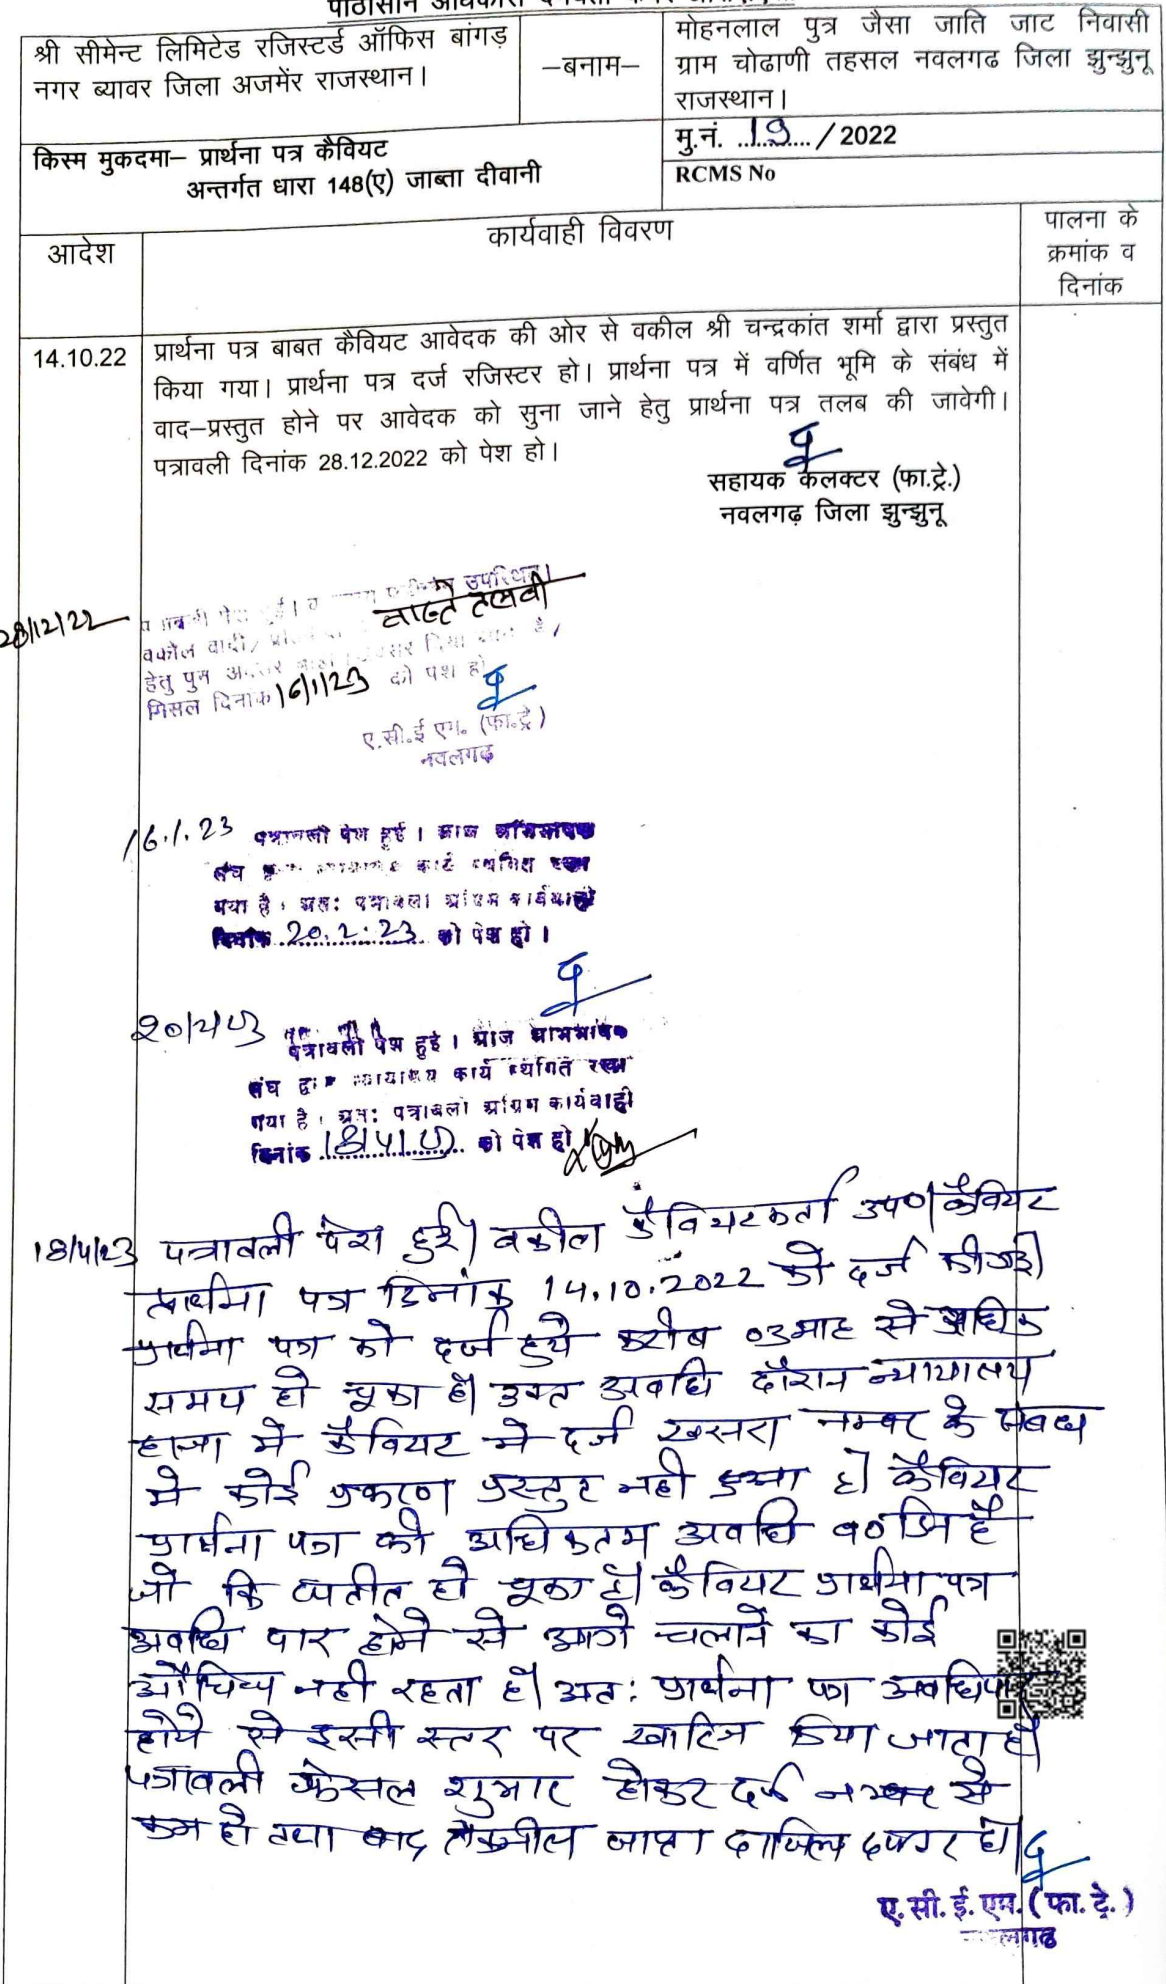 श्री सीमेन्ट लिमिटेड रजिस्टर्ड ऑफिस बांगड़
नगर ब्यावर जिला अजमेंर राजस्थान।
–बनाम–
मोहनलाल पुत्र जैसा जाति जाट निवासी
ग्राम चोढाणी तहसल नवलगढ जिला झुन्झुनू
राजस्थान।
किस्म मुकदमा– प्रार्थना पत्र कैवियट
अन्तर्गत धारा 148(ए) जाब्ता दीवानी
मु.नं. ..19.... / 2022
RCMS No
आदेश
कार्यवाही विवरण
पालना के
क्रमांक व
दिनांक
14.10.22
प्रार्थना पत्र बाबत कैवियट आवेदक की ओर से वकील श्री चन्द्रकांत शर्मा द्वारा प्रस्तुत
किया गया। प्रार्थना पत्र दर्ज रजिस्टर हो। प्रार्थना पत्र में वर्णित भूमि के संबंध में
वाद–प्रस्तुत होने पर आवेदक को सुना जाने हेतु प्रार्थना पत्र तलब की जावेगी।
पत्रावली दिनांक 28.12.2022 को पेश हो।
सहायक कलक्टर (फा.ट्रे.)
नवलगढ़ जिला झुन्झुनू
28/12/22
पेश हुई। उपस्थित।
वास्ते तलबी
वकील वादी/ दिया है,
हेतु पुन
मिसल दिनांक 16/1/23 को पेश हो
ए.सी.ई एम. (फा.ट्रे)
नवलगढ़
16.1.23 पत्रावली पेश हुई। आज अभिभाषक
संघ कार्य स्थगित रखा
गया है। अतः पत्रावली अग्रिम कार्यवाही
दिनांक 20.2.23 को पेश हो।
20/2/23 पत्रावली पेश हुई। आज अभिभाषक
संघ द्वारा न्यायालय कार्य स्थगित रखा
गया है। अतः पत्रावली अग्रिम कार्यवाही
दिनांक 18/4/23 को पेश हो
18/4/23 पत्रावली पेश हुई। वकील कैवियटकर्ता उप०। कैवियट
प्रार्थना पत्र दिनांक 14.10.2022 को दर्ज की गई।
प्रार्थना पत्र को दर्ज हुये करीब 03माह से अधिक
समय हो चूका है। उक्त अवधि दौरान न्यायालय
हाजा में कैवियट मे दर्ज खसरा नम्बर के संबंध
मे कोई प्रकरण प्रस्तुत नही हुआ है। कैवियट
प्रार्थना पत्र की अधिकतम अवधि 90 दिन है
जो कि व्यतीत हो चूका है। कैवियट प्रार्थना पत्र
अवधि पार होने से आगे चलाने का कोई
औचित्य नही रहता है। अतः प्रार्थना पत्र अवधिपार
होने से इसी स्तर पर खारिज किया जाता है।
पत्रावली फैसल शुमार होकर दर्ज नम्बर से
कम हो तथा बाद तकमील जाप्ता दाखिल दफ्तर हो।
ए.सी.ई.एम.(फा.ट्रे.)